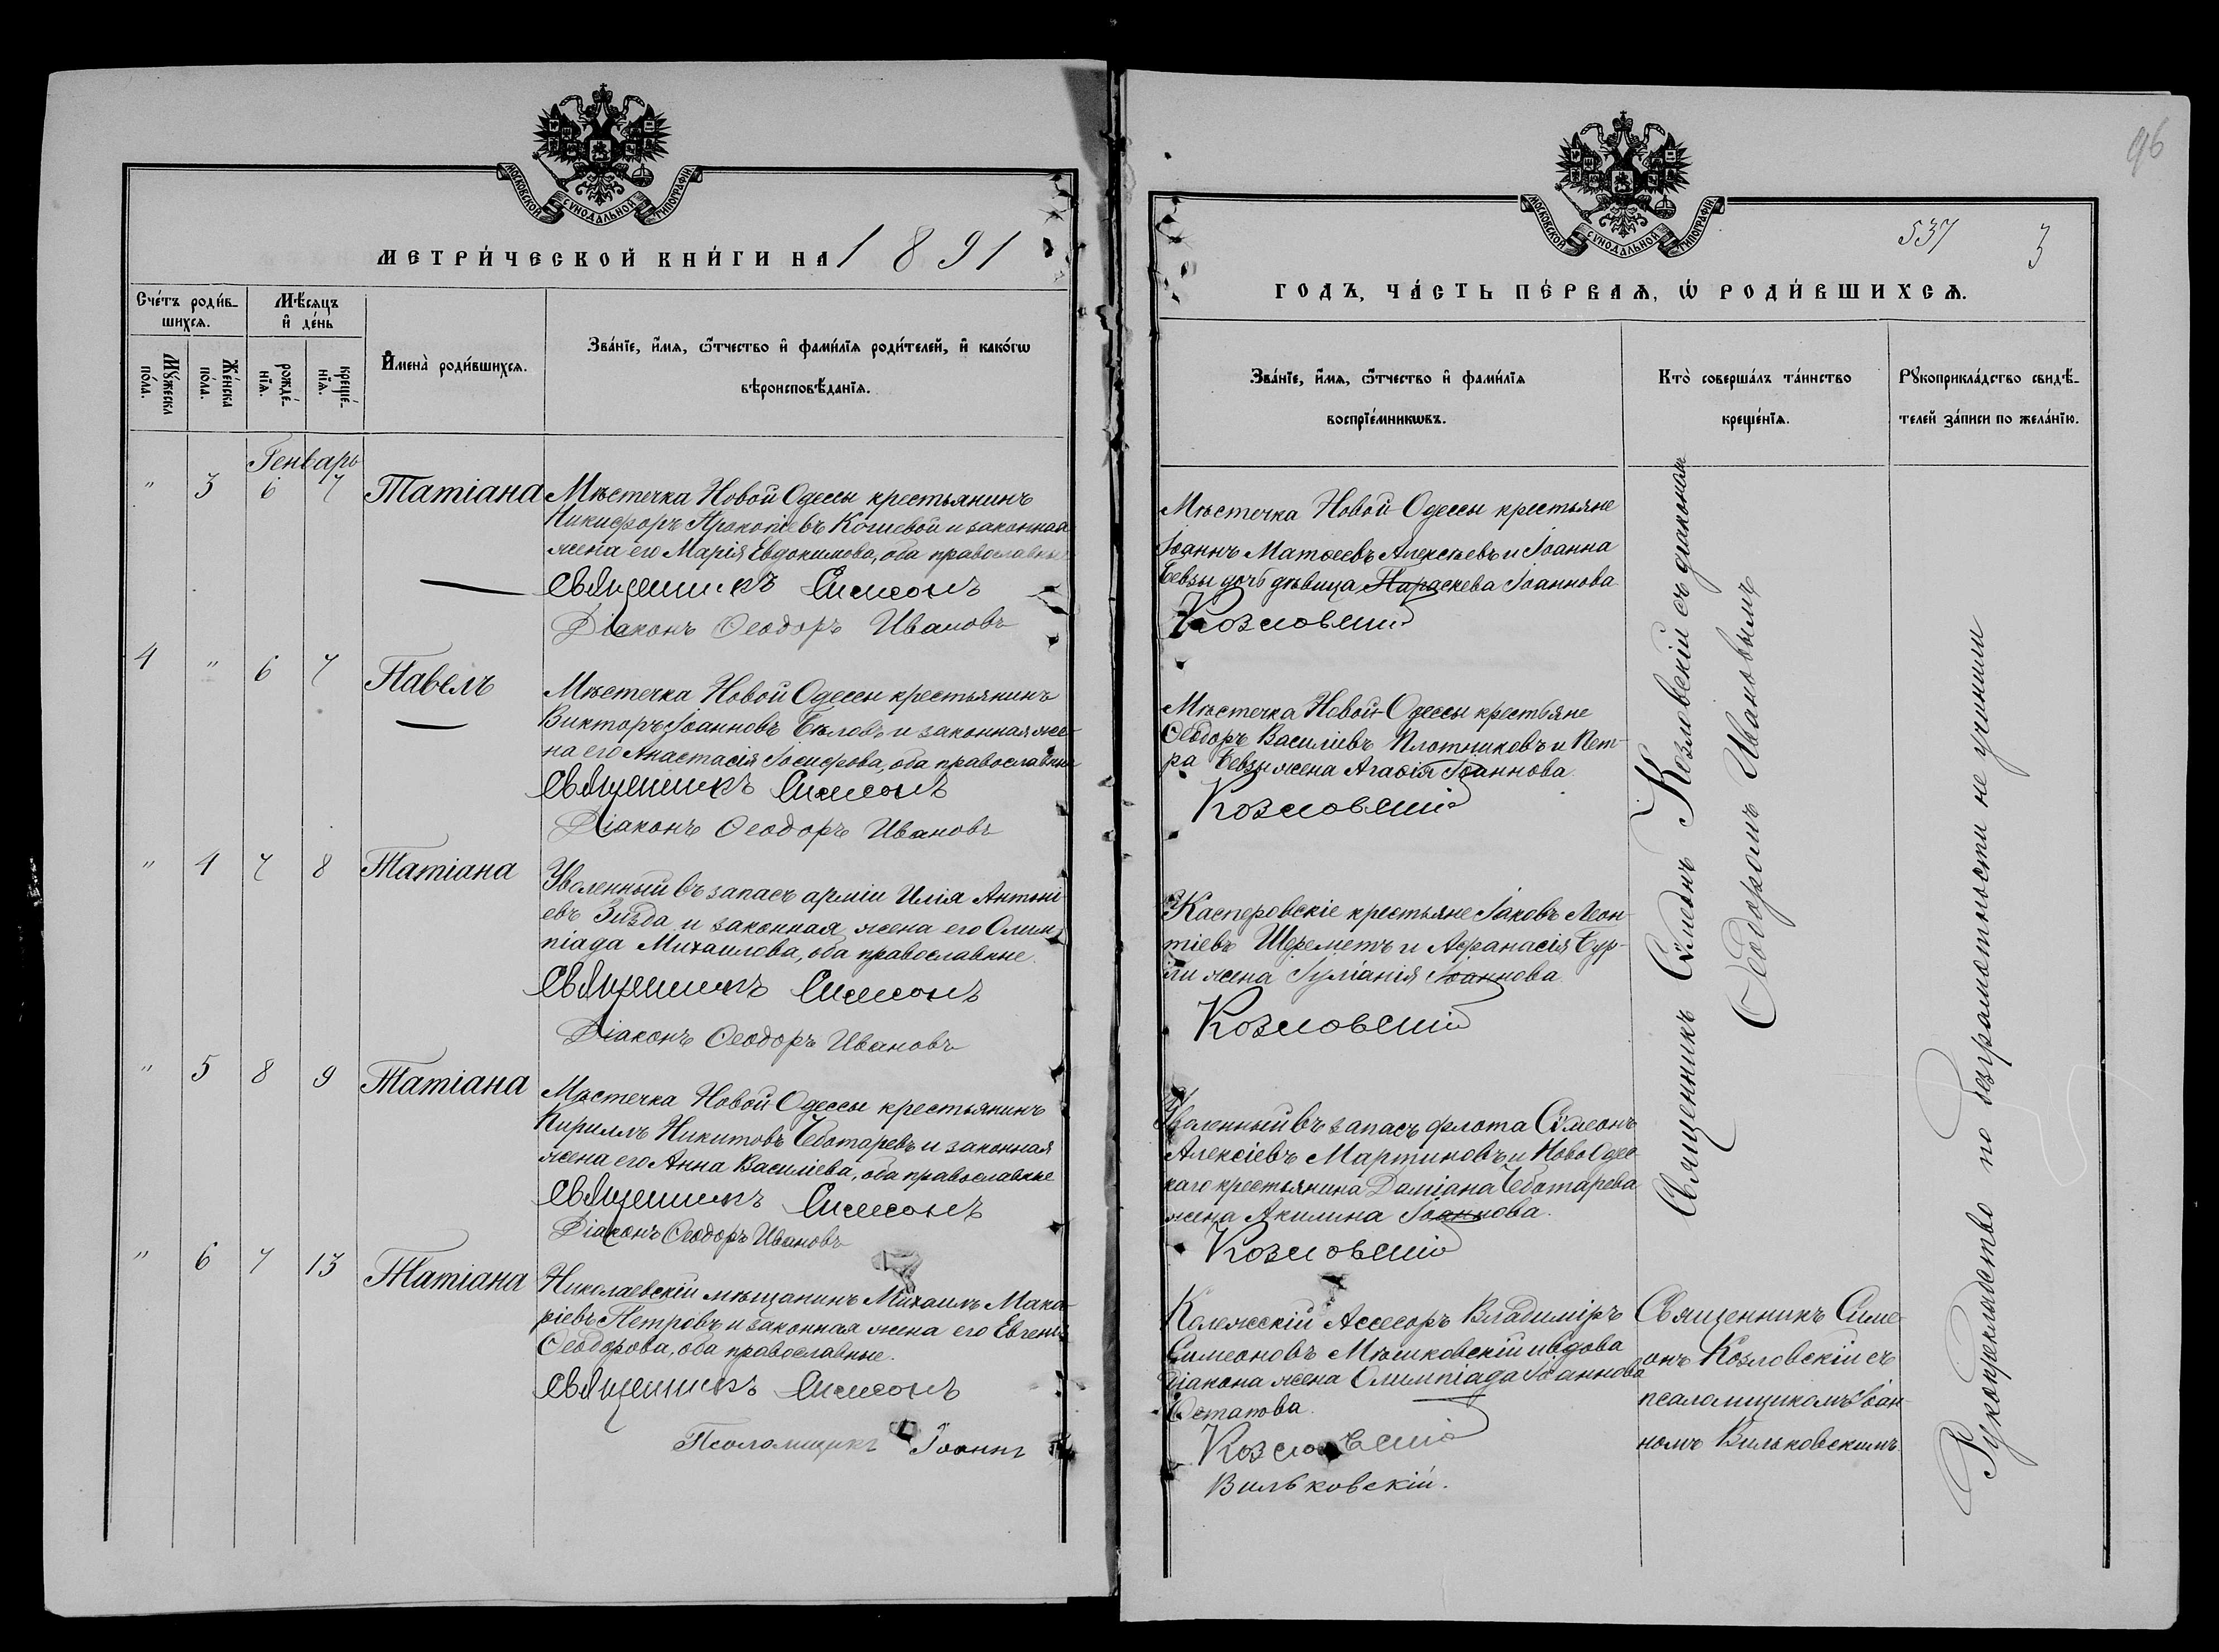 96
МОСКОВСКОЙ СѴНОДАЛЬНОЙ ТИПОГРАФІИ
МЕТРИ́ЧЕСКОЙ КНИ́ГИ НА 1891
Сче́тъ роди́в-
шихсѧ.
Мѣ́сѧцъ
и҆ де́нь
Мꙋ́жеска
по́ла.
Же́нска
по́ла.
рожде́-
нїѧ.
креще́-
нїѧ.
И҆мена̀ роди́вшихсѧ.
Зва́нїе, и҆́мѧ, ѻ҆́тчество и҆ фами́лїѧ роди́телей, и҆ како́гѡ
вѣроисповѣ́данїѧ.
Генварь
" 3 6 7 Татіана
Мѣстечка Новой Одессы крестьянинъ
Никифоръ Прокопіевъ Кошевой и законная
жена его Марія Евдокимова, оба православные
Священникъ Симеонъ
Діаконъ Ѳеодоръ Ивановъ
4 " 6 7 Павелъ
Мѣстечка Новой Одессы крестьянинъ
Викторъ Іоанновъ Бѣловъ и законная же-
на его Анастасія Іосифова, оба православные
Священникъ Симеонъ
Діаконъ Ѳеодоръ Ивановъ
" 4 7 8 Татіана
Уволенный въ запасъ арміи Илія Антоні-
евъ Зиѣзда и законная жена его Олим-
піада Михаилова, оба православные.
Священникъ Симеонъ
Діаконъ Ѳеодоръ Ивановъ
" 5 8 9 Татіана
Мѣстечка Новой Одессы крестьянинъ
Кириллъ Никитовъ Чеботаревъ и законная
жена его Анна Василіева, оба православные
Священникъ Симеонъ
Діаконъ Ѳеодоръ Ивановъ
" 6 7 13 Татіана
Николаевскій мѣщанинъ Михаилъ Мака-
ріевъ Петровъ и законная жена его Евгенія
Ѳеодорова, оба православные.
Священникъ Симеонъ
Псаломщикъ Іоаннъ
МОСКОВСКОЙ СѴНОДАЛЬНОЙ ТИПОГРАФІИ
537 3
ГОДЪ, ЧА́СТЬ ПЕ́РВАѦ, Ѡ҆ РОДИ́ВШИХСѦ.
Зва́нїе, и҆́мѧ, ѻ҆́тчество и҆ фами́лїѧ
воспрїе́мникѡвъ.
Кто̀ соверша́лъ та́инство
креще́нїѧ.
Рꙋкоприкла́дство свидѣ́-
телей за́писи по жела́нїю.
Мѣстечка Новой Одессы крестьяне
Іоаннъ Матѳеевъ Алексѣевъ и Іоанна
Бевзы дочь дѣвица Параскева Іоаннова
Козловскій
Мѣстечка Новой Одессы крестьяне
Ѳеодоръ Василіевъ Плотниковъ и Пет-
ра Бевзы жена Агаѳія Іоаннова.
Козловскій
Касперовскіе крестьяне Іаковъ Леон-
тіевъ Шереметъ и Афанасія Бур-
жена Іуліанія Іоаннова.
Козловскій
Уволенный въ запасъ флота Сѵмеонъ
Алексіевъ Мартиновъ и НовоОдес-
каго крестьянина Даміана Чеботарева
жена Акилина Іоаннова.
Козловскій
Колежскій Ассесоръ Владиміръ
Симеоновъ Мѣшковскій и вдова
діакона жена Олимпіада Іоаннова
Остапова.
Козловскій
Вильковскій.
Священникъ Сѵмеонъ Козловскій съ діакономъ
Ѳеодоромъ Ивановымъ
Священникъ Симе-
онъ Козловскій съ
псаломщикомъ Іоан-
номъ Вильковскимъ
Рукоприкладство по безграмотности не учинили